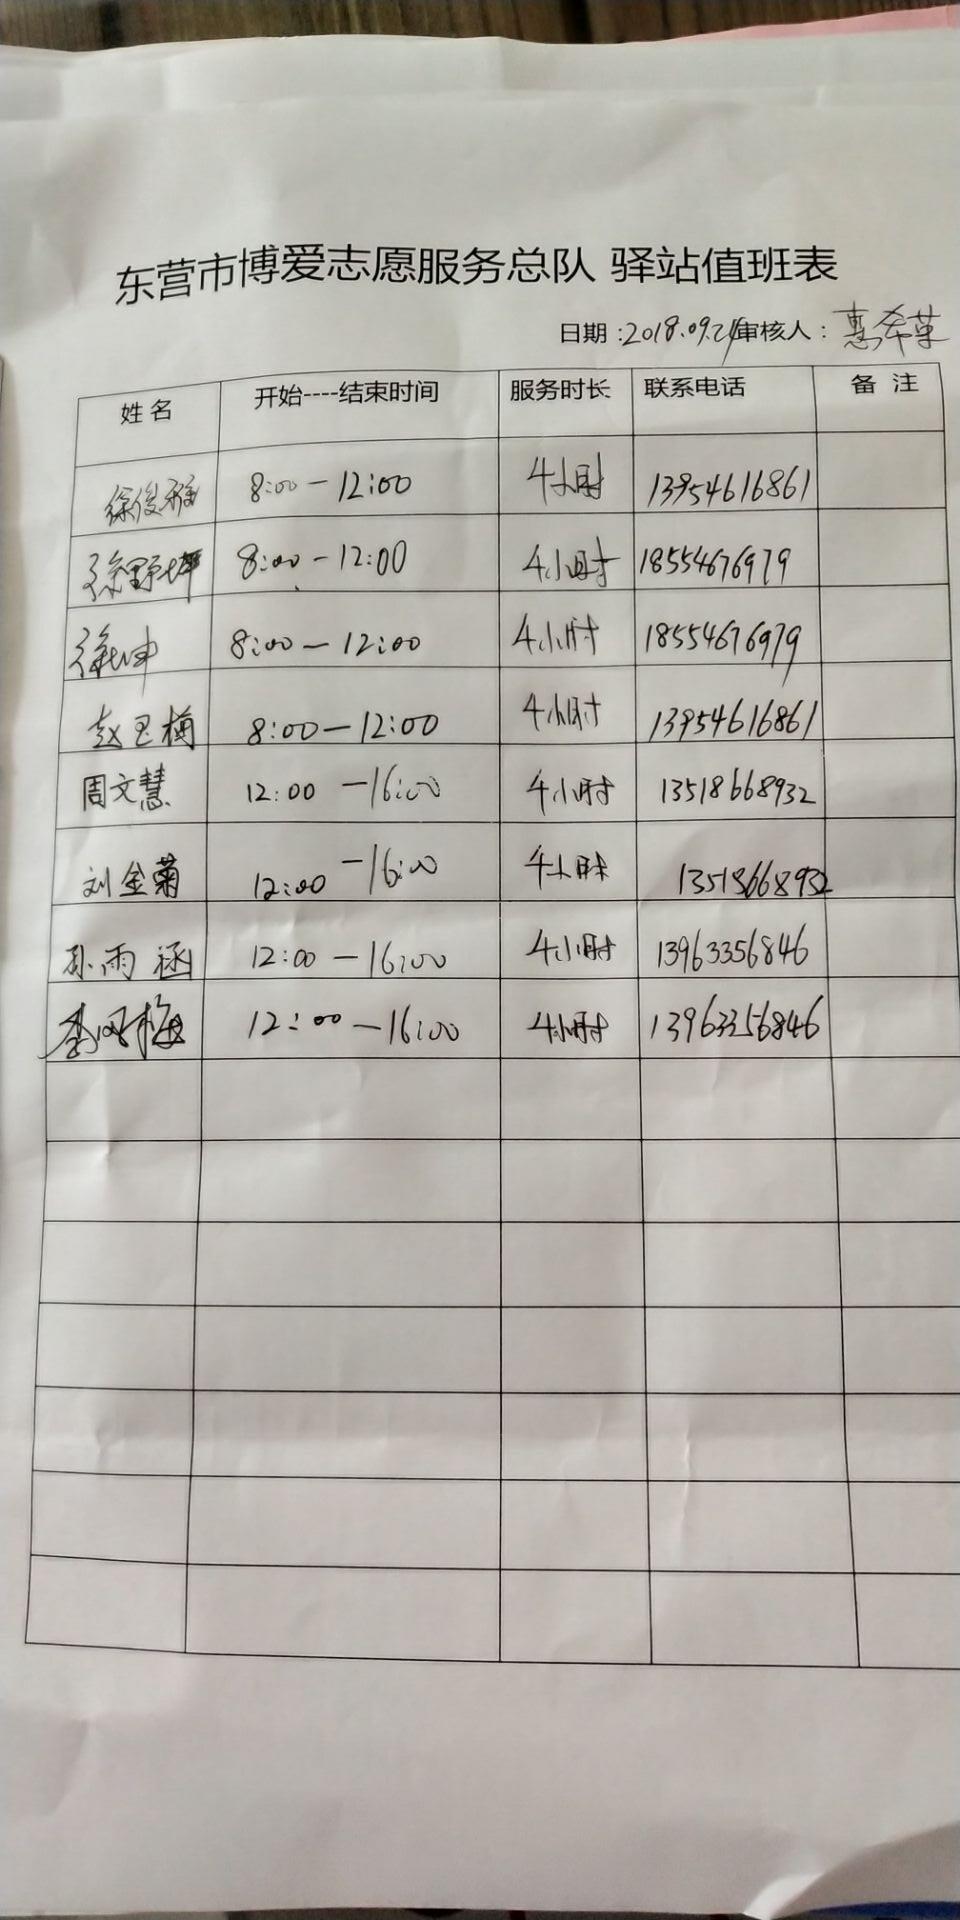 东营市博爱志愿服务总队 驿站值班表
日期:2018.09.24审核人:惠希革
姓名 开始----结束时间 服务时长 联系电话 备 注
徐俊雅 8:00-12:00 4小时 13954616861
徐野坪 8:00-12:00 4小时 18554676979
徐坤 8:00-12:00 4小时 18554676979
赵玉梅 8:00-12:00 4小时 13954616861
周文慧 12:00-16:00 4小时 13518668932
刘金菊 12:00-16:00 4小时 13518668932
孙雨涵 12:00-16:00 4小时 13963356846
李风梅 12:00-16:00 4小时 13963356846